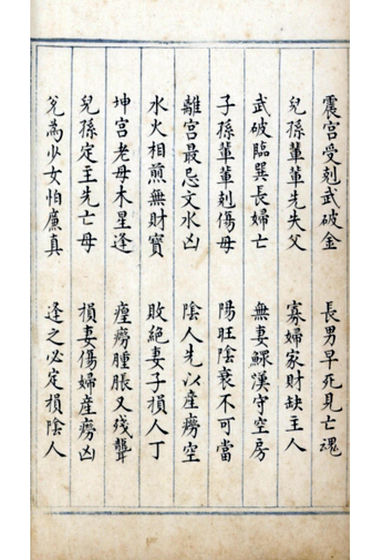 震宮受剋武破金　長男早死見亡魂
兒孫輩輩先失父　寡婦家財缺主人
武破臨巽長婦亡　無妻鰥漢守空房
子孫輩輩剋傷母　陽旺陰衰不可當
離宮最忌文水凶　陰人先以産癆空
水火相煎無財寶　敗絶妻子損人丁
坤宮老母木星逢　瘽癆腫脹又殘聾
兒孫定主先亡母　損妻傷婦産癆凶
兌為少女怕廉真　逢之必定損陰人